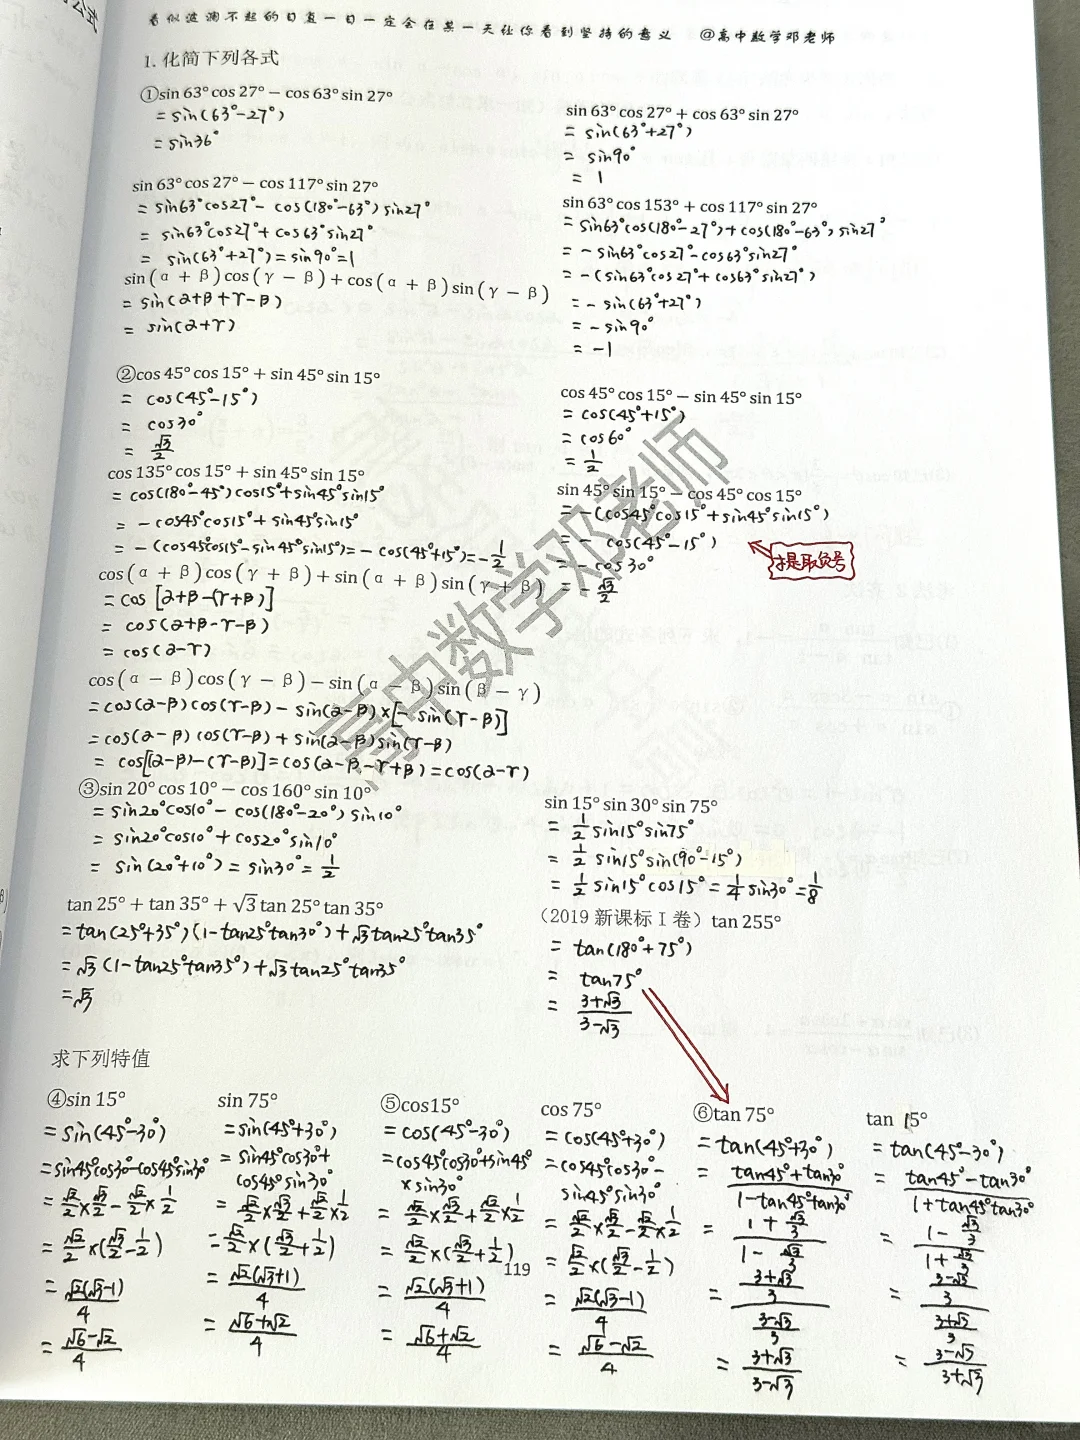 看似波澜不起的日复一日一定会在某一天让你看到坚持的意义 @高中数学邓老师
1. 化简下列各式
①sin 63° cos 27° − cos 63° sin 27°
= sin(63°−27°)
= sin36°
sin 63° cos 27° + cos 63° sin 27°
= sin(63°+27°)
= sin90°
= 1
sin 63° cos 27° − cos 117° sin 27°
= sin63°cos27° − cos(180°−63°)sin27°
= sin63°cos27° + cos63°sin27°
= sin(63°+27°) = sin90° = 1
sin 63° cos 153° + cos 117° sin 27°
= sin63°cos(180°−27°)+cos(180°−63°)sin27°
= −sin63°cos27°−cos63°sin27°
= −(sin63°cos27°+cos63°sin27°)
= −sin(63°+27°)
= −sin90°
= −1
sin(α + β)cos(γ − β)+cos(α + β)sin(γ − β)
= sin(α+β+γ−β)
= sin(α+γ)
②cos 45° cos 15° + sin 45° sin 15°
= cos(45°−15°)
= cos30°
= √3/2
cos 45° cos 15° − sin 45° sin 15°
= cos(45°+15°)
= cos60°
= 1/2
cos 135° cos 15° + sin 45° sin 15°
= cos(180°−45°)cos15°+sin45°sin15°
= −cos45°cos15°+sin45°sin15°
= −(cos45°cos15°−sin45°sin15°)=−cos(45°+15°)=−1/2
sin 45° sin 15° − cos 45° cos 15°
= −(cos45°cos15°+sin45°sin15°)
= − cos(45°−15°)
= −cos30°
= −√3/2
提取负号
cos(α + β)cos(γ + β)+sin(α + β)sin(γ + β)
= cos[α+β−(γ+β)]
= cos(α+β−γ−β)
= cos(α−γ)
cos(α − β)cos(γ − β)−sin(α − β)sin(β − γ)
= cos(α−β)cos(γ−β)−sin(α−β)×[−sin(γ−β)]
= cos(α−β)cos(γ−β)+sin(α−β)sin(γ−β)
= cos[(α−β)−(γ−β)]=cos(α−β−γ+β)=cos(α−γ)
③sin 20° cos 10° − cos 160° sin 10°
= sin20°cos10°−cos(180°−20°)sin10°
= sin20°cos10°+cos20°sin10°
= sin(20°+10°)=sin30°=1/2
sin 15° sin 30° sin 75°
= 1/2 sin15°sin75°
= 1/2 sin15°sin(90°−15°)
= 1/2 sin15°cos15°=1/4 sin30°=1/8
tan 25° + tan 35° + √3 tan 25° tan 35°
= tan(25°+35°)(1−tan25°tan30°)+√3tan25°tan35°
= √3(1−tan25°tan35°)+√3tan25°tan35°
= √3
（2019 新课标 I 卷）tan 255°
= tan(180°+75°)
= tan75°
= (3+√3)/(3−√3)
求下列特值
④sin 15°
= sin(45°−30°)
= sin45°cos30°−cos45°sin30°
= √2/2×√3/2−√2/2×1/2
= √2/2×(√3/2−1/2)
= √2(√3−1)/4
= (√6−√2)/4
sin 75°
= sin(45°+30°)
= sin45°cos30°+
cos45°sin30°
= √2/2×√3/2+√2/2×1/2
= √2/2×(√3/2+1/2)
= √2(√3+1)/4
= (√6+√2)/4
⑤cos15°
= cos(45°−30°)
= cos45°cos30°+sin45°
×sin30°
= √2/2×√3/2+√2/2×1/2
= √2/2×(√3/2+1/2)
= √2(√3+1)/4
= (√6+√2)/4
cos 75°
= cos(45°+30°)
= cos45°cos30°−
sin45°sin30°
= √2/2×√3/2−√2/2×1/2
= √2/2×(√3/2−1/2)
= √2(√3−1)/4
= (√6−√2)/4
⑥tan 75°
= tan(45°+30°)
= (tan45°+tan30°)/(1−tan45°tan30°)
= (1+√3/3)/(1−√3/3)
= ((3+√3)/3)/((3−√3)/3)
= (3+√3)/(3−√3)
tan 15°
= tan(45°−30°)
= (tan45°−tan30°)/(1+tan45°tan30°)
= (1−√3/3)/(1+√3/3)
= ((3−√3)/3)/((3+√3)/3)
= (3−√3)/(3+√3)
119
高中数学邓老师